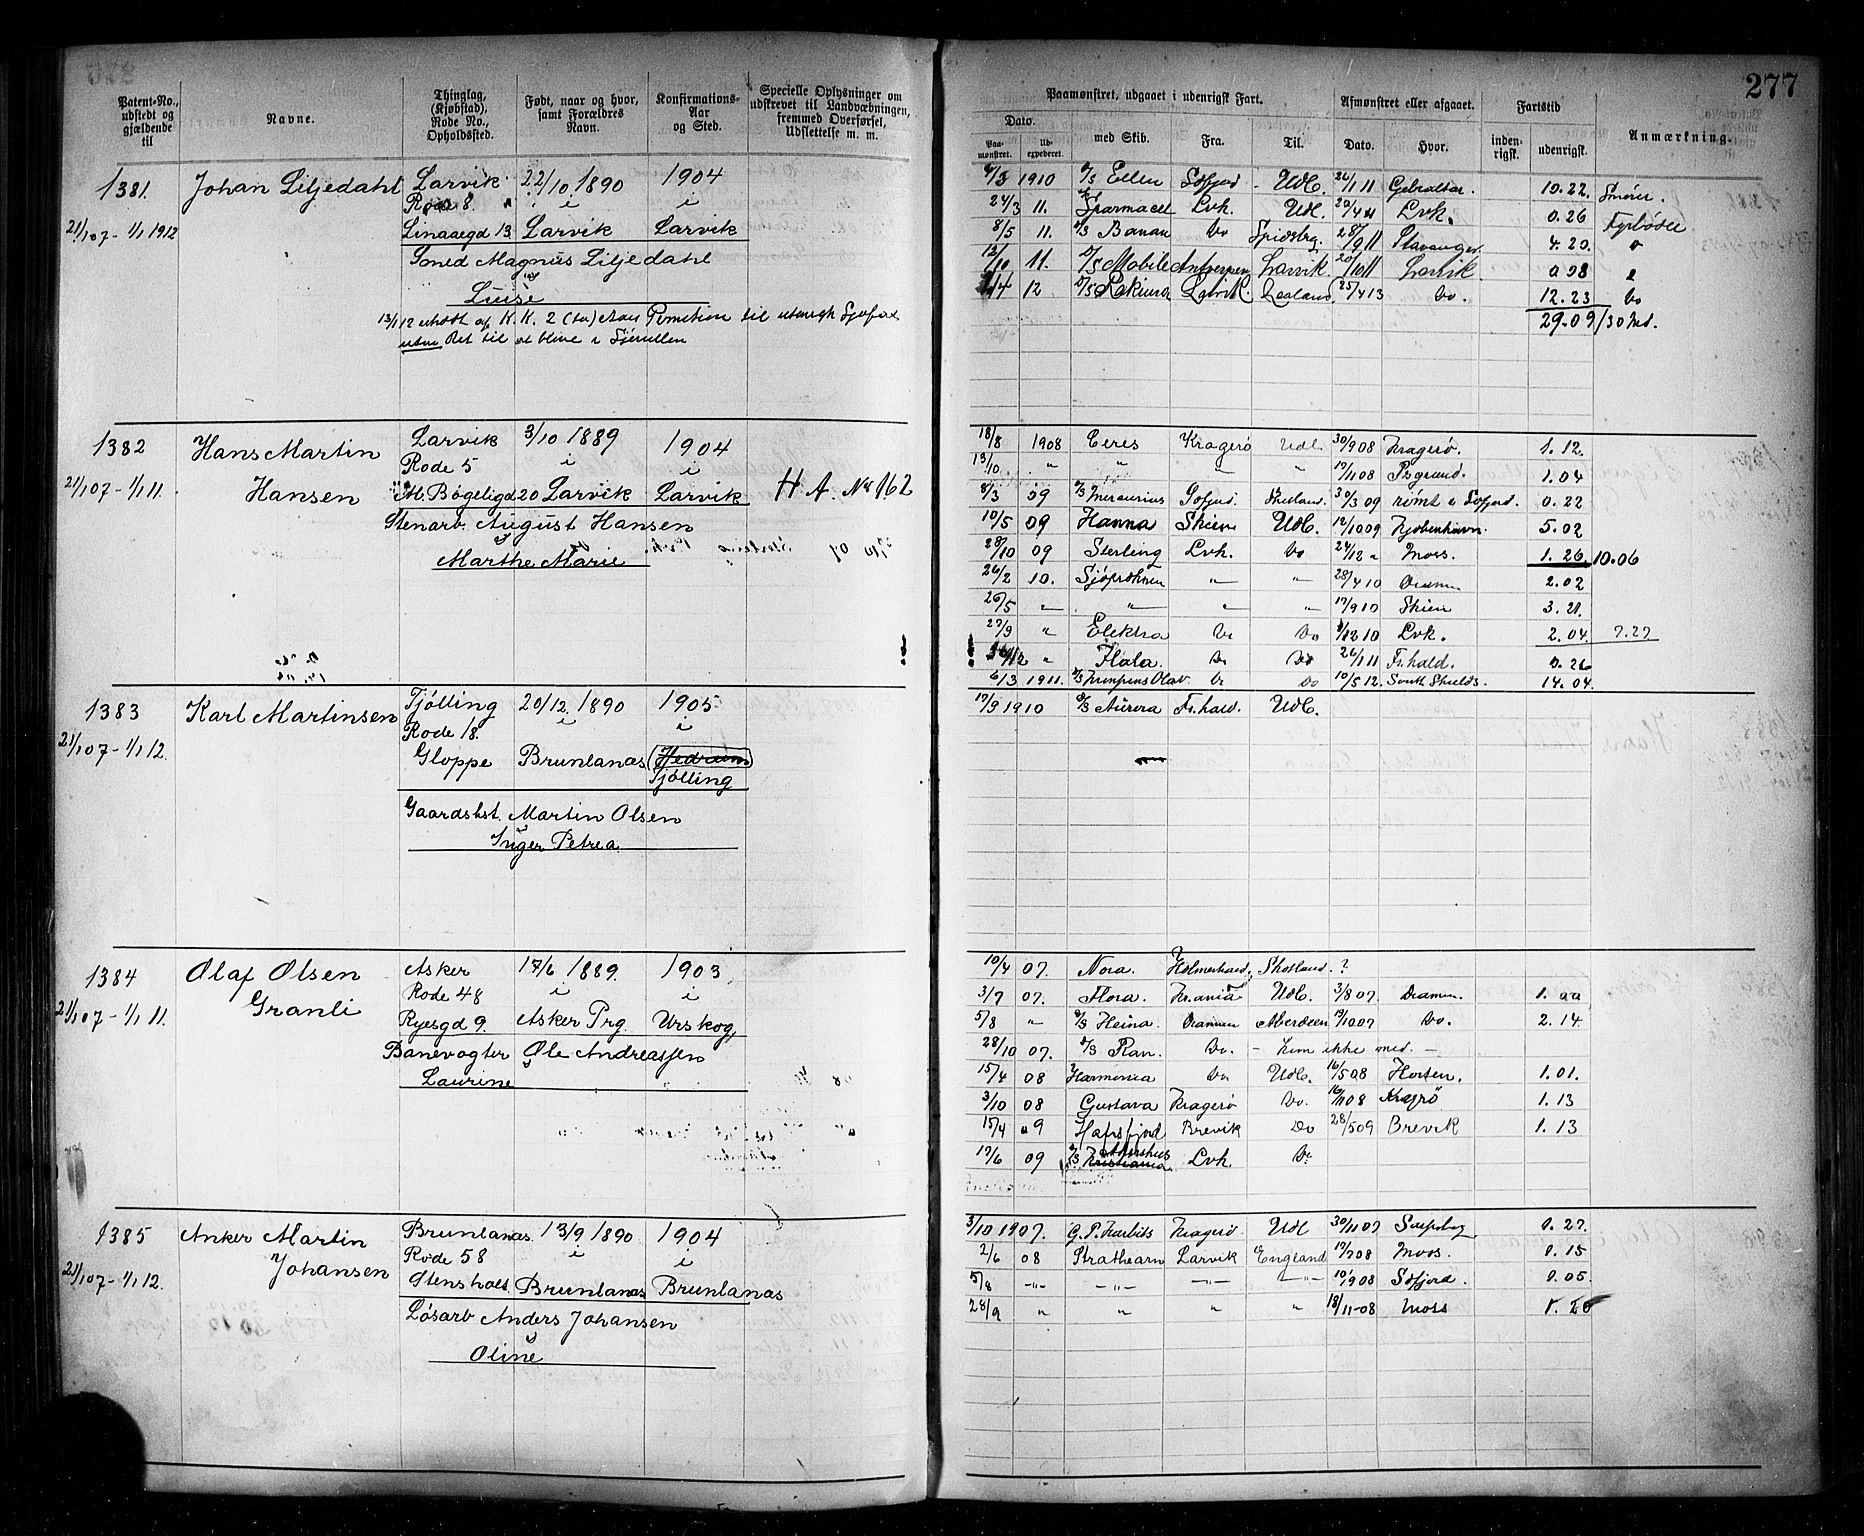 277
Patent-No., udstedt og gjældende til
Navne.
Thinglag, (Kjøbstad), Rode No., Opholdssted.
Født, naar og hvor, samt Forældres Navn.
Konfirmations-Aar og Sted.
Specielle Oplysninger om udskrevet til Landværnet, fremmed Overførsel, Udslettelse m. m.
Paamønstret, udgaaet i udenrigsk Fart.
Afmønstret eller afgaaet.
Fartstid
Anmærkning.
Dato.
Paamønstret.
Udexpederet.
med Skib.
Fra.
Til.
Dato.
Hvor.
indenrigsk.
udenrigsk.
1381. Johan Liljedahl Larvik 22/10 1890 1904
Rode 8. i i
21/1 07 - 1/1 1912 Linaaegd 13. Larvik Larvik
Smed Magnus Liljedahl
Luise
13/1 12 K. K. 2 til
Ret til at blive i
1910 Ellen Udl. 26/1 11 Gibraltar. 10.22. Smører.
24/3 11. Sparmacet Lvk. Udl. Lvk. 0.26 Fyrbøder
8/5 11. Banan Do Spidsbg. 28/9 11 Stavanger. 4.20. "
12/10 11. D/S Mobile Antwerpen Larvik. 20/10 11 Larvik 0.08 "
12 D/S Rakiura Larvik. Zealand. 25/4 13 Do. 12.23 Do
29.09/30 Md.
1382 Hans Martin Larvik 3/10 1889 1904
Rode 5 i i
21/1 07 - 1/1 11. Hansen Bøgeligd 20 Larvik Larvik H A. No 162
Stenarb. August Hansen
Marthe Marie
18/8 1908 Ceres Kragerø Udl. 30/9 08 Kragerø. 1.12.
13/10 " " " " 17/11 08 Prsgrund. 1.04
8/3 09 Mercurius Sofjord. Shetland. 30/3 09 rømt i Sofjord. 0.22
10/5 09 Hanna Skien Udl. 12/10 09 Kjøbenhavn. 5.02
28/10 09 Sterling Lvk. Do 24/12 " Moss. 1.26. 10.06
26/2 10. " " 28/4 10 Dramm 2.02
26/5 " " " " 17/9 10 Skien 3.21.
27/9 " Elektra Do Do Lvk. 2.04. 7.27
" Flola. Do Do 26/1 11 Fr.hald. 0.26
6/3 1911. Do Do 10/5 12. South Shields. 14.04.
1383 Karl Martinsen Tjølling 20/12. 1890 1905
Rode 18. i i
21/1 07 - 1/1 12. Gloppe Brunlanæs Hedrum
Tjølling
Gaardsbst. Martin Olsen
Inger Petrea
17/9 1910 Aurora Fr.hald. Udl.
1384 Olaf Olsen Asker 17/6 1889. 1903
Granli Rode 48 i i
21/1 07 - 1/1 11. Ryesgd 9. Asker Prg. Urskog,
Banevogter Ole Andreassen
Laurine
10/4 07. Nora. Holmestrand. Shotland. ?
3/7 07. Flora. Kr.ania Udl. 3/8 07. Dramm. 1.00
5/8 " Heina. Drammen Aberdeen 19/10 07 Do. 2.14.
28/10 07. Ran. Do. - kom ikke med. -
15/4 08 Harmonia Do Udl. 16/5 08 Horten. 1.01.
3/10 08 Gustava Kragerø Do. 16/11 08 Kragrø 1.13
15/4 09 Hafrsfjord Brevik Do 28/5 09 Brevik 1.13
17/6 09 Akershus Kristiania Lvk. Do
1385 Anker Martin Brunlanæs. 13/9 1890 1904
Johansen Rode 58 i i
21/1 07 - 1/1 12. Stensholt Brunlanæs Brunlanæs
Løsarb Anders Johansen
Oline
3/10 1907. Kragerø Udl 30/11 07 Sarpsbrg 1.27.
2/6 08 Strathearn Larvik England 17/7 08 Moss. 1.15
5/8 -"- -"- -"- -"- 10/9 08 Sofjord. 1.05.
28/9 " " " " 18/11-08 Moss 1.20